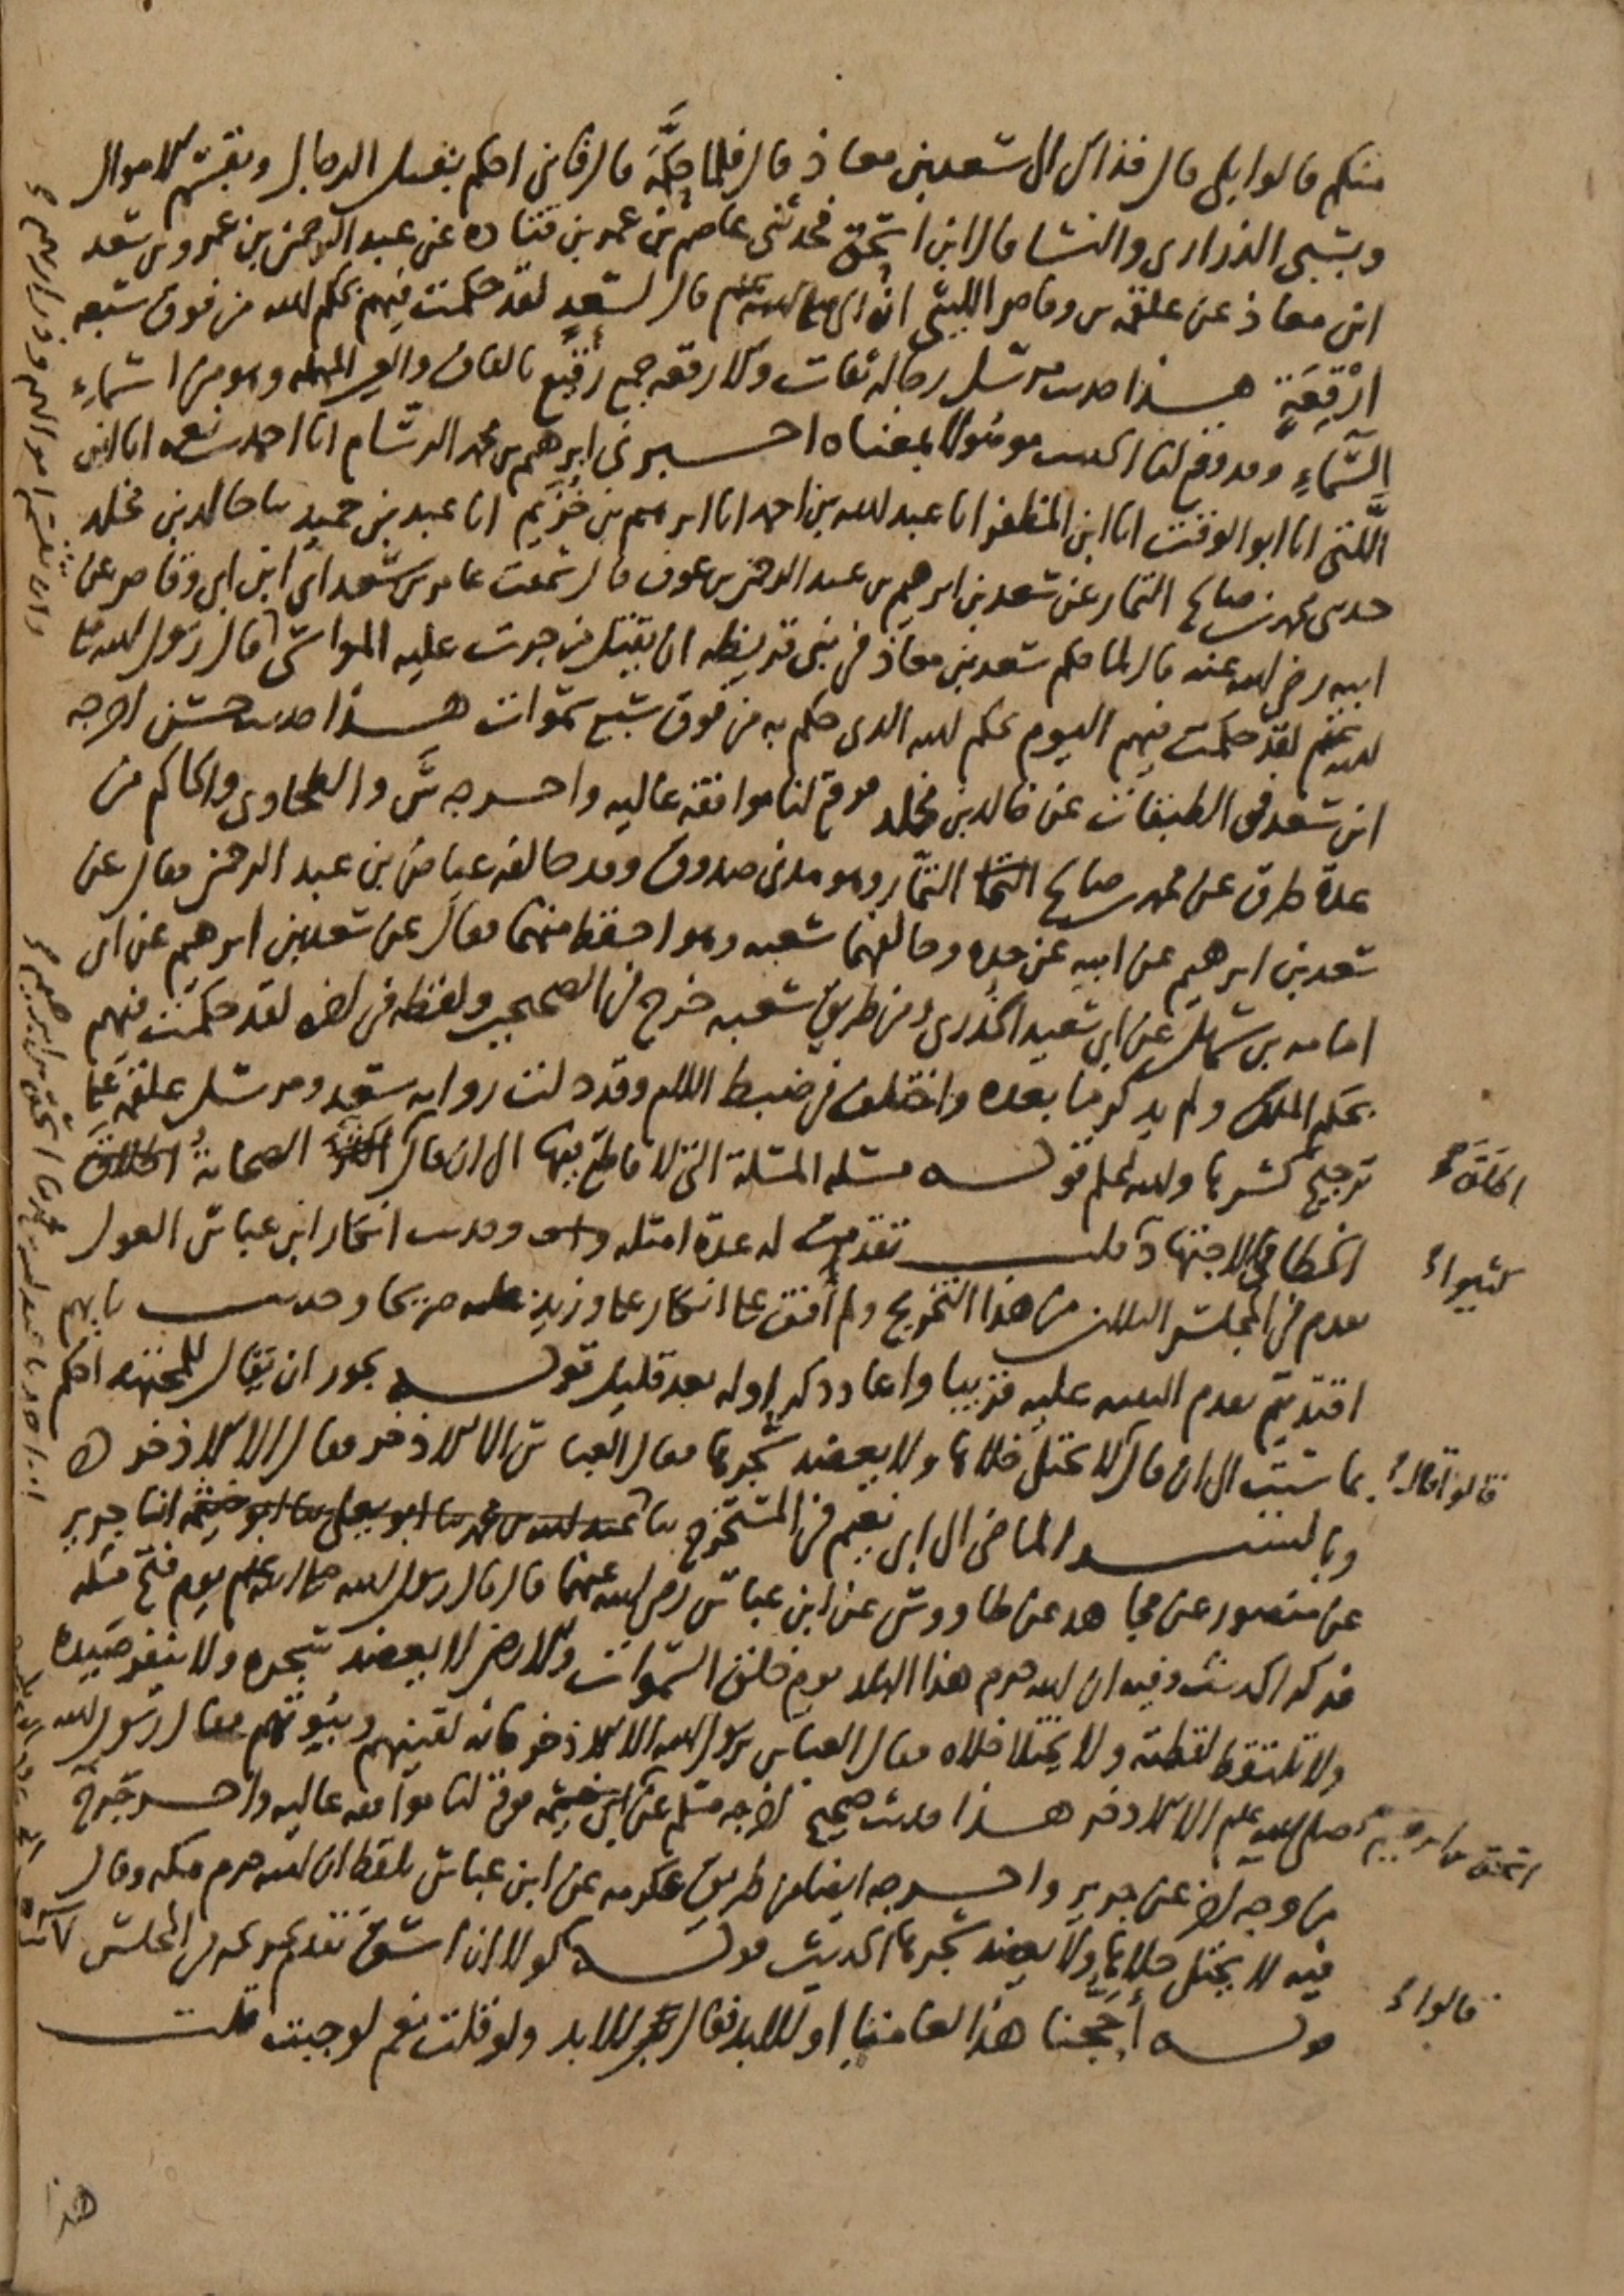 منكم قالوا بلى قال فذاك الى سعد بن معاذ قال فلما حكمه قال فاني احكم بقتل الرجال وبقسم الاموال
وبسبى الذرارى والنسا قال ابن اسحق فحدثنى عاصم بن عمر بن قتادة عن عبد الرحمن بن عمرو بن سعد
ابن معاذ عن علقمة بن وقاص الليثى ان النبي صلى الله عليه وسلم قال لسعد لقد حكمت فيهم بحكم الله من فوق سبعه
ارقعة هذا حديث مرسل رجاله ثقات والارقعه جمع رقيع بالقاف والعين المهمله وهو من اسماء
السماء وقد وقع لنا الحديث موصولا بمعناه اخبرنى ابرهيم بن محمد الرسام انا احمد بن نعمه انا ابن
اللتى انا ابو الوقت انا ابن المظفر انا عبد الله بن احمد انا ابرهيم بن خزيم انا عبد بن حميد ثنا خالد بن مخلد
حدثنى محمد بن صالح التمار عن سعد بن ابرهيم بن عبد الرحمن بن عوف قال سمعت عامر بن سعد اى ابن ابى وقاص عن
ابيه رضى الله عنه قال لما حكم سعد بن معاذ فى بنى قريظه ان يقتل من جرت عليه المواسى قال رسول الله صلى
الله عليه وسلم لقد حكمت فيهم اليوم بحكم الله الذى حكم به من فوق سبع سموات هذا حديث حسن اخرجه
ابن سعد فى الطبقات عن خالد بن مخلد فوقع لنا موافقة عاليه واخرجه س والطحاوى والحاكم من
عدة طرق عن محمد بن صالح التمار وهو مدنى صدوق وقد خالفه عياض بن عبد الرحمن فقال عن
سعد بن ابرهيم عن ابيه عن جده وخالفهما شعبه وهو احفظ منهما فقال عن سعد بن ابرهيم عن ابى
امامه بن سهل عن ابى سعيد الخدرى ومن طريق شعبه خرج فى الصحيحين ولفظه فى اخره لقد حكمت فيهم
بحكم الملك ولم يذكر ما بعده واختلف فى ضبط اللام وقد دلت رواية سعد ومرسل علقمه على
ترجيح كسرها والله اعلم قوله مسله المسلة التى لا قاطع فيها الى ان قال الصحابة
الخطا فى الاجتهاد قلت تقدمت له عدة امثله وحديث انكار ابن عباس العول
تقدم فى المجلس الثلاثين من هذا التخريج ولم اقف على انكار على وزيد عليه صريحا وحديث بايهم
اقتديتم تقدم التنبيه عليه قريبا واعاد ذكر اوله بعد قليل قوله يجوز ان يقال للمجتهد احكم
بما شئت الى ان قال لا يختلى خلاها ولا يعضد شجرها فقال العباس الا الاذخر فقال الا الاذخر
وبالسند الماضى الى ابى نعيم فى المستخرج ثنا عبد الله بن محمد ثنا ابو يعلى ثنا ابو خيثمه انا جرير
عن منصور عن مجاهد عن طاووس عن ابن عباس رضى الله عنهما قال قال رسول الله صلى الله عليه وسلم يوم فتح مكه
فذكر الحديث وفيه ان الله حرم هذا البلد يوم خلق السموات والارض لا يعضد شجره ولا ينفر صيده
ولا تلتقط لقطته ولا يختلا خلاه فقال العباس يرسول الله الا الاذخر فانه لقينهم وبيوتهم فقال رسول الله
صلى الله عليه وسلم الا الاذخر هذا حديث صحيح اخرجه مسلم عن ابى خيثمه فوقع لنا موافقه عاليه واخرجه خ
من وجه اخر عن جرير واخرجه ايضا من طريق عكرمه عن ابن عباس بلفظ ان الله حرم مكه وقال
فيه لا يختلى خلاها ولا يعضد شجرها الحديث قوله لولا ان اشق تقدم تخريجه فى المجلس
قوله أحجنا هذا لعامنا او للابد فقال للابد ولو قلت نعم لوجبت قلت
كثيرا
قالوا قال
اسحق بن ابرهيم
قالوا
هذا